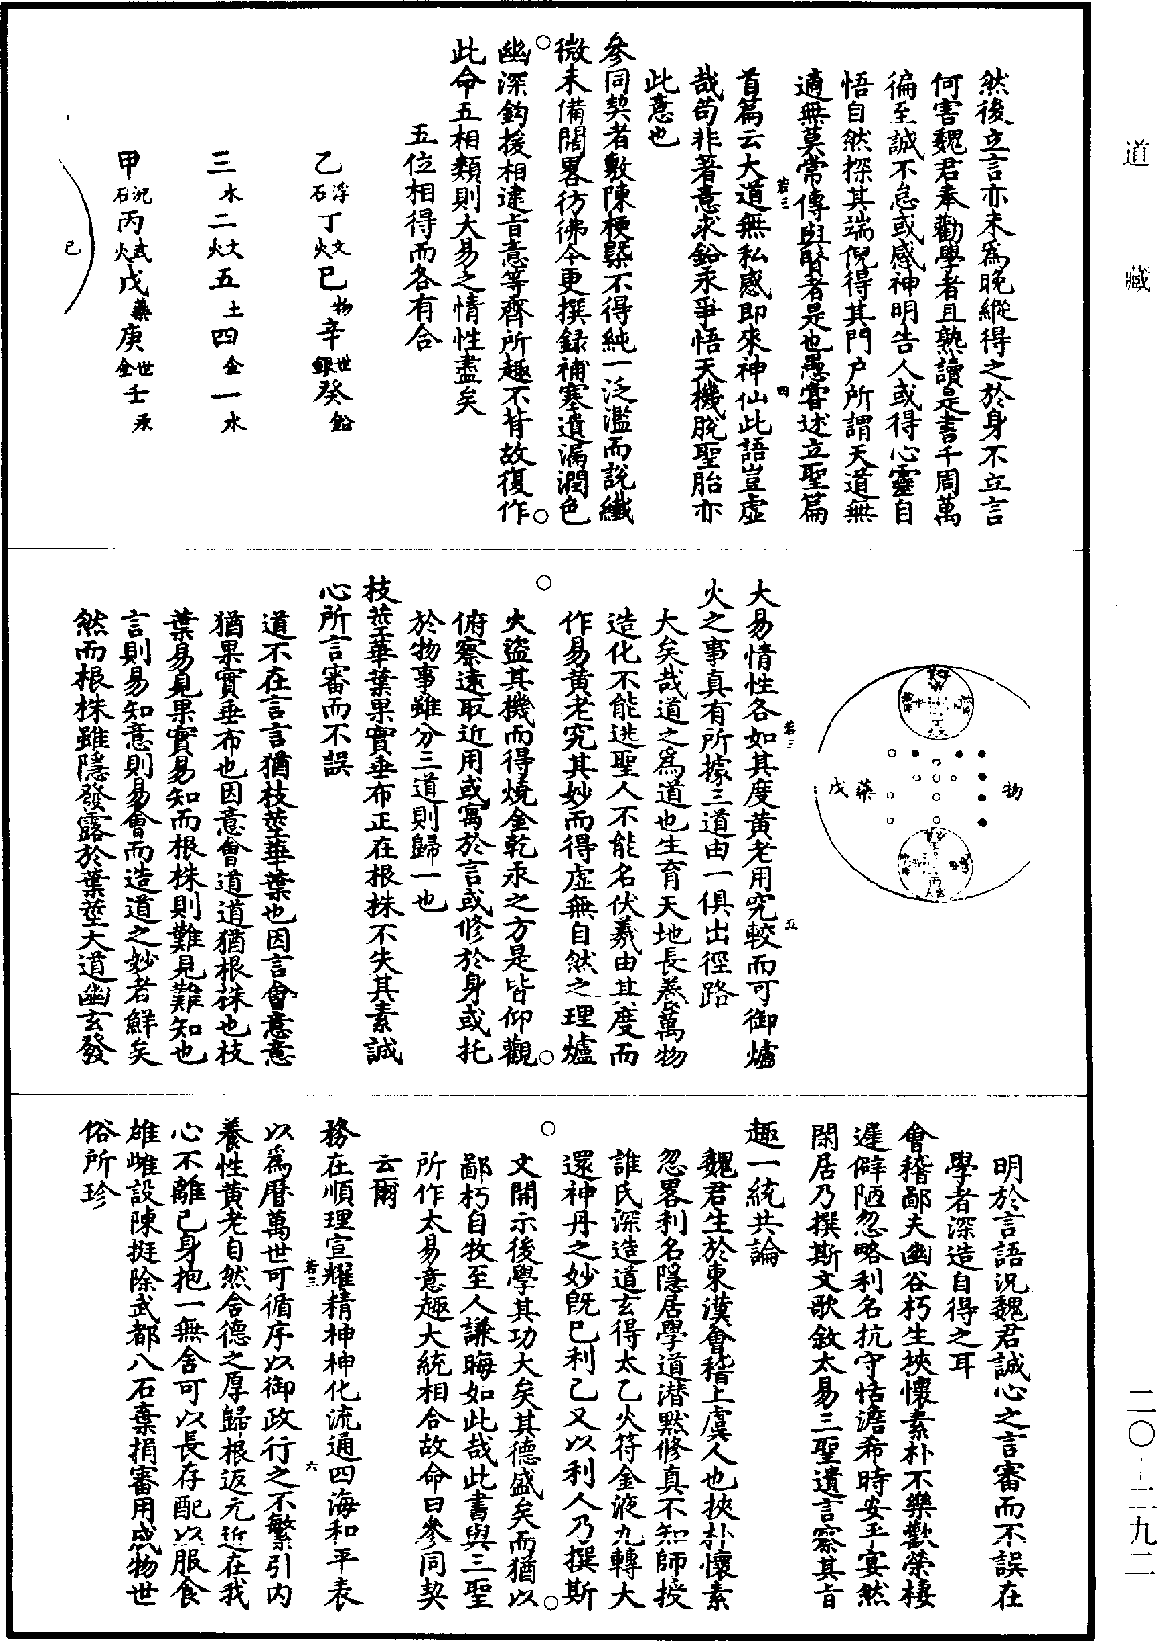 道藏
二〇·二九二
然後立言亦未為晚縱得之於身不立言
何害魏君奉勸學者且熟讀是書千周萬
徧至誠不怠或感神明告人或得心靈自
悟自然探其端倪得其門户所謂天道無
適無莫常傳與賢者是也愚嘗述立聖篇
若三 四
首篇云大道無私感即來神仙此語豈虛
哉苟非著意求鉛汞爭悟天機脫聖胎亦
此意也
參同契者敷陳梗槩不得純一泛濫而說纖
微未備闊畧彷彿今更撰録補塞遺漏潤色
○幽深鈎援相逮旨意等齊所趣不背故復作○
此命五相類則大易之情性盡矣
五位相得而各有合
乙浮石丁文火巳物辛世銀癸鉛
三水二文火五土四金一水
甲沉石丙武火戊藥庚世金壬汞
己
戊 藥 物
大易情性各如其度黄老用究較而可御爐
若三 五
火之事真有所據三道由一俱出徑路
大矣哉道之為道也生育天地長養萬物
造化不能逃聖人不能名伏羲由其度而
作易黄老究其妙而得虛無自然之理爐
○火盜其機而得燒金乾汞之方是皆仰觀○
俯察遠取近用或寓於言或修於身或托
於物事雖分三道則歸一也
枝莖華葉果實垂布正在根株不失其素誠
心所言審而不誤
道不在言言猶枝莖華葉也因言會意意
猶果實垂布也因意會道道猶根株也枝
葉易見果實易知而根株則難見難知也
言則易知意則易會而造道之妙者鮮矣
然而根株雖隱發露於葉莖大道幽玄發
明於言語況魏君誠心之言審而不誤在
學者深造自得之耳
會稽鄙夫幽谷朽生挾懷素朴不樂歡榮棲
遲僻陋忽略利名抗守恬澹希時安平宴然
閑居乃撰斯文歌敘太易三聖遺言察其旨
趣一統共論
魏君生於東漢會稽上虞人也挾朴懷素
忽畧利名隱居學道潜默修真不知師授
誰氏深造道玄得太乙火符金液九轉大
還神丹之妙旣已利己又以利人乃撰斯
○文開示後學其功大矣其德盛矣而猶以○
鄙朽自牧至人謙晦如此哉此書與三聖
所作太易意趣大統相合故命曰參同契
云爾
務在順理宣耀精神神化流通四海和平表
若三 六
以為曆萬世可循序以御政行之不繁引内
養性黄老自然含德之厚歸根返元近在我
心不離己身抱一無舍可以長存配以服食
雄雌設陳挺除武都八石棄捐審用成物世
俗所珍